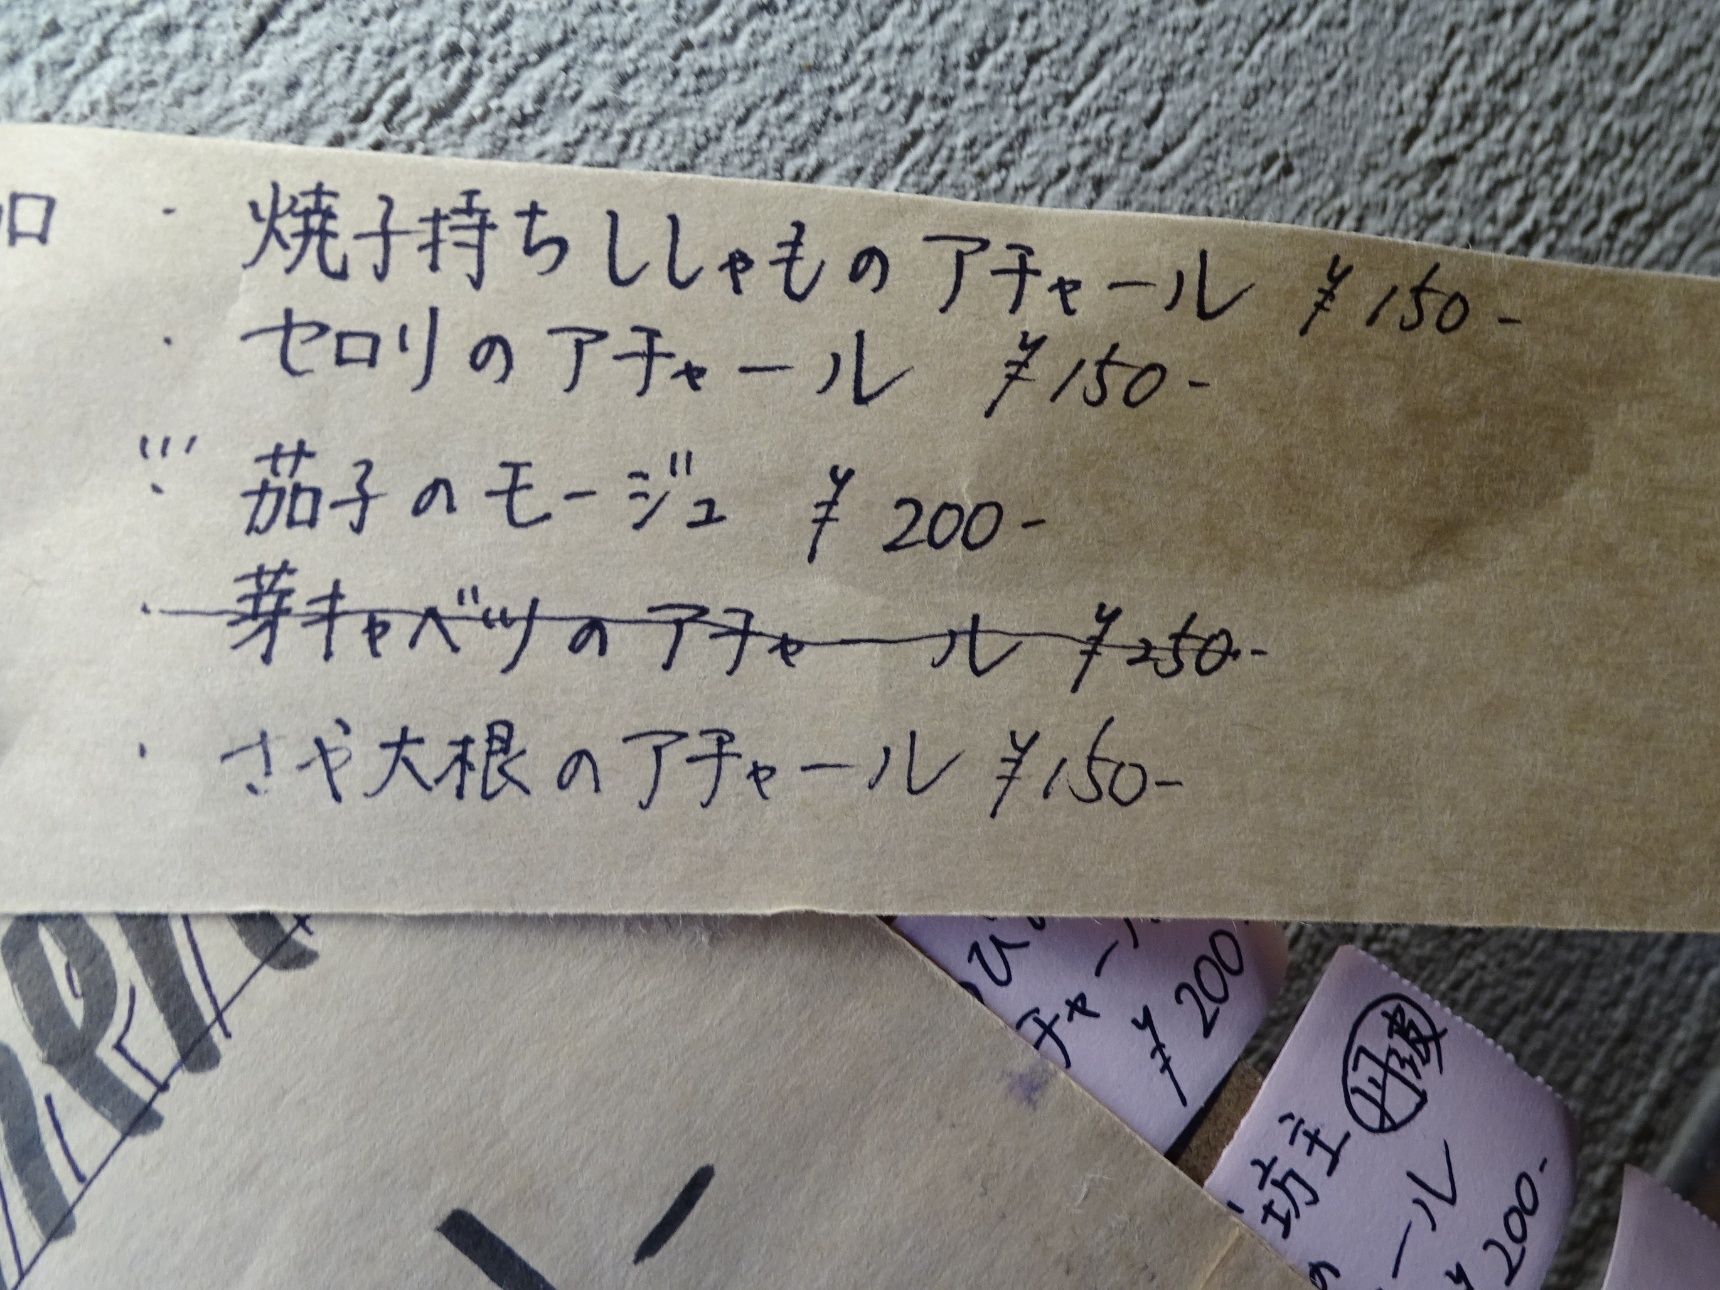 ・焼子持ちししゃものアチャール ¥150-
・セロリのアチャール ¥150-
・茄子のモージュ ¥200-
・芽キャベツのアチャール ¥250-
・さや大根のアチャール ¥150-
チャール
¥200-
丹波
坊主
ール
¥200-